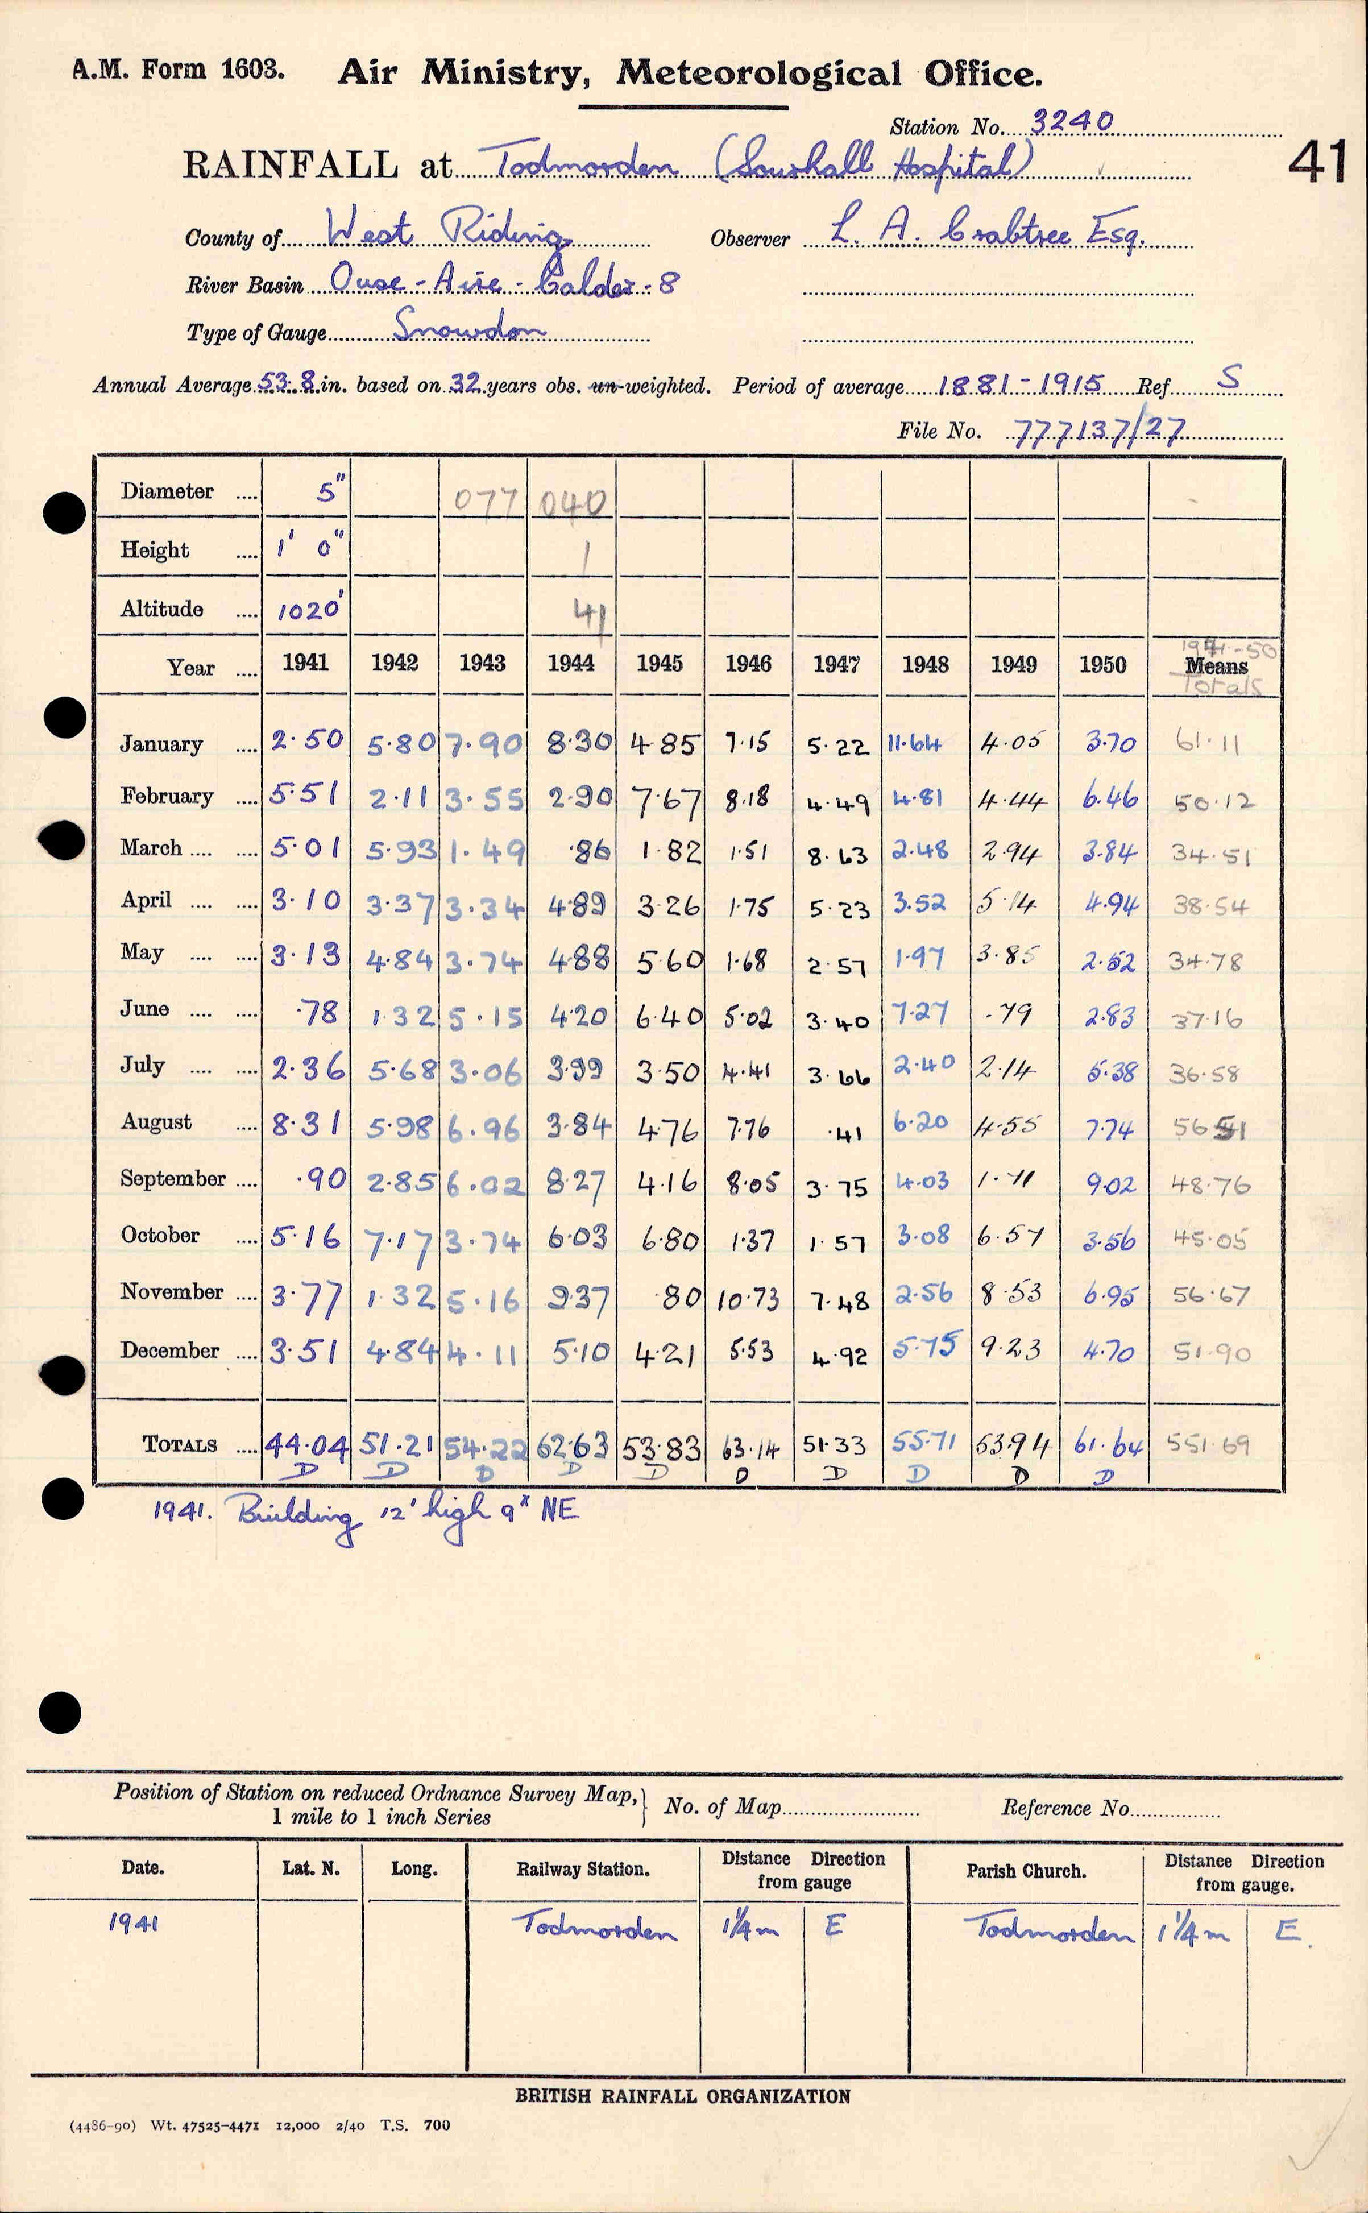 A.M. Form 1603. Air Ministry, Meteorological Office.
Station No. 3240
RAINFALL at Todmorden (Sourhall Hospital) 41
County of West Riding Observer L. A. Crabtree Esq.
River Basin Ouse - Aire - Calder - 8
Type of Gauge Snowdon
Annual Average 53.8 in. based on 32 years obs. un-weighted. Period of average 1881-1915 Ref S
File No. 777137/27
Diameter .... 5" 077 040
Height .... 1' 0" 1
Altitude .... 1020' 41
Year .... 1941 1942 1943 1944 1945 1946 1947 1948 1949 1950 1941-50 Means Totals
January .... 2.50 5.80 7.90 8.30 4.85 7.15 5.22 11.64 4.05 3.70 61.11
February .... 5.51 2.11 3.55 2.90 7.67 8.18 4.49 4.81 4.44 6.46 50.12
March .... .... 5.01 5.93 1.49 .86 1.82 1.51 8.63 2.48 2.94 3.84 34.51
April .... .... 3.10 3.37 3.34 4.89 3.26 1.75 5.23 3.52 5.14 4.94 38.54
May .... .... 3.13 4.84 3.74 4.88 5.60 1.68 2.57 1.97 3.85 2.52 34.78
June .... .... .78 1.32 5.15 4.20 6.40 5.02 3.40 7.27 .79 2.83 37.16
July .... .... 2.36 5.68 3.06 3.99 3.50 4.41 3.66 2.40 2.14 5.38 36.58
August .... 8.31 5.98 6.96 3.84 4.76 7.76 .41 6.20 4.55 7.74 56.51
September .... .90 2.85 6.02 8.27 4.16 8.05 3.75 4.03 1.71 9.02 48.76
October .... 5.16 7.17 3.74 6.03 6.80 1.37 1.57 3.08 6.57 3.56 45.05
November .... 3.77 1.32 5.16 9.37 .80 10.73 7.48 2.56 8.53 6.95 56.67
December .... 3.51 4.84 4.11 5.10 4.21 5.53 4.92 5.75 9.23 4.70 51.90
TOTALS .... 44.04 51.21 54.22 62.63 53.83 63.14 51.33 55.71 53.94 61.64 551.69
D D D D D D D D D D
1941. Building 12' high 9" NE
Position of Station on reduced Ordnance Survey Map, 1 mile to 1 inch Series } No. of Map Reference No.
Date. Lat. N. Long. Railway Station. Distance Direction from gauge Parish Church. Distance Direction from gauge.
1941 Todmorden 1¼ m E Todmorden 1¼ m E.
BRITISH RAINFALL ORGANIZATION
(4486-90) Wt. 47525-4471 12,000 2/40 T.S. 700